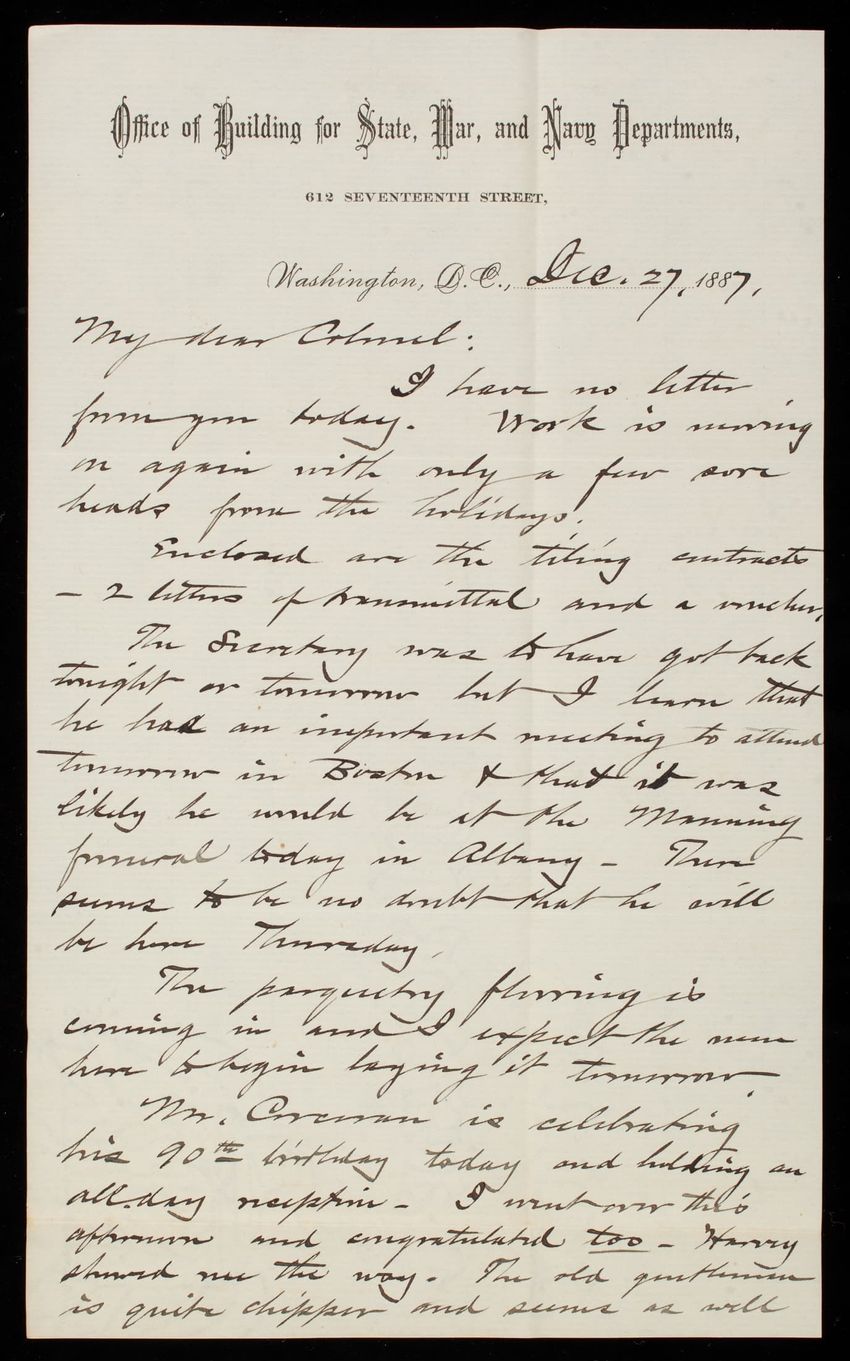 Office of Building for State, War, and Navy Departments,
612 SEVENTEENTH STREET,
Washington, D.C., Dec. 27, 1887,
My dear Colonel:
I have no letter
from you today. Work is moving
on again with only a few sore
heads from the holidays.
Enclosed are the tiling contracts
- 2 letters of transmittal and a voucher.
The Secretary was to have got back
tonight or tomorrow but I learn that
he had an important meeting to attend
tomorrow in Boston & that it was
likely he would be at the Manning
funeral today in Albany - There
seems to be no doubt that he will
be here Thursday.
The parquetry flooring is
coming in and I expect the men
here to begin laying it tomorrow.
Mr. Corcoran is celebrating
his 90th birthday today and holding an
all-day reception - I went over this
afternoon and congratulated too - Harvey
showed me the way. The old gentleman
is quite chipper and seems as well